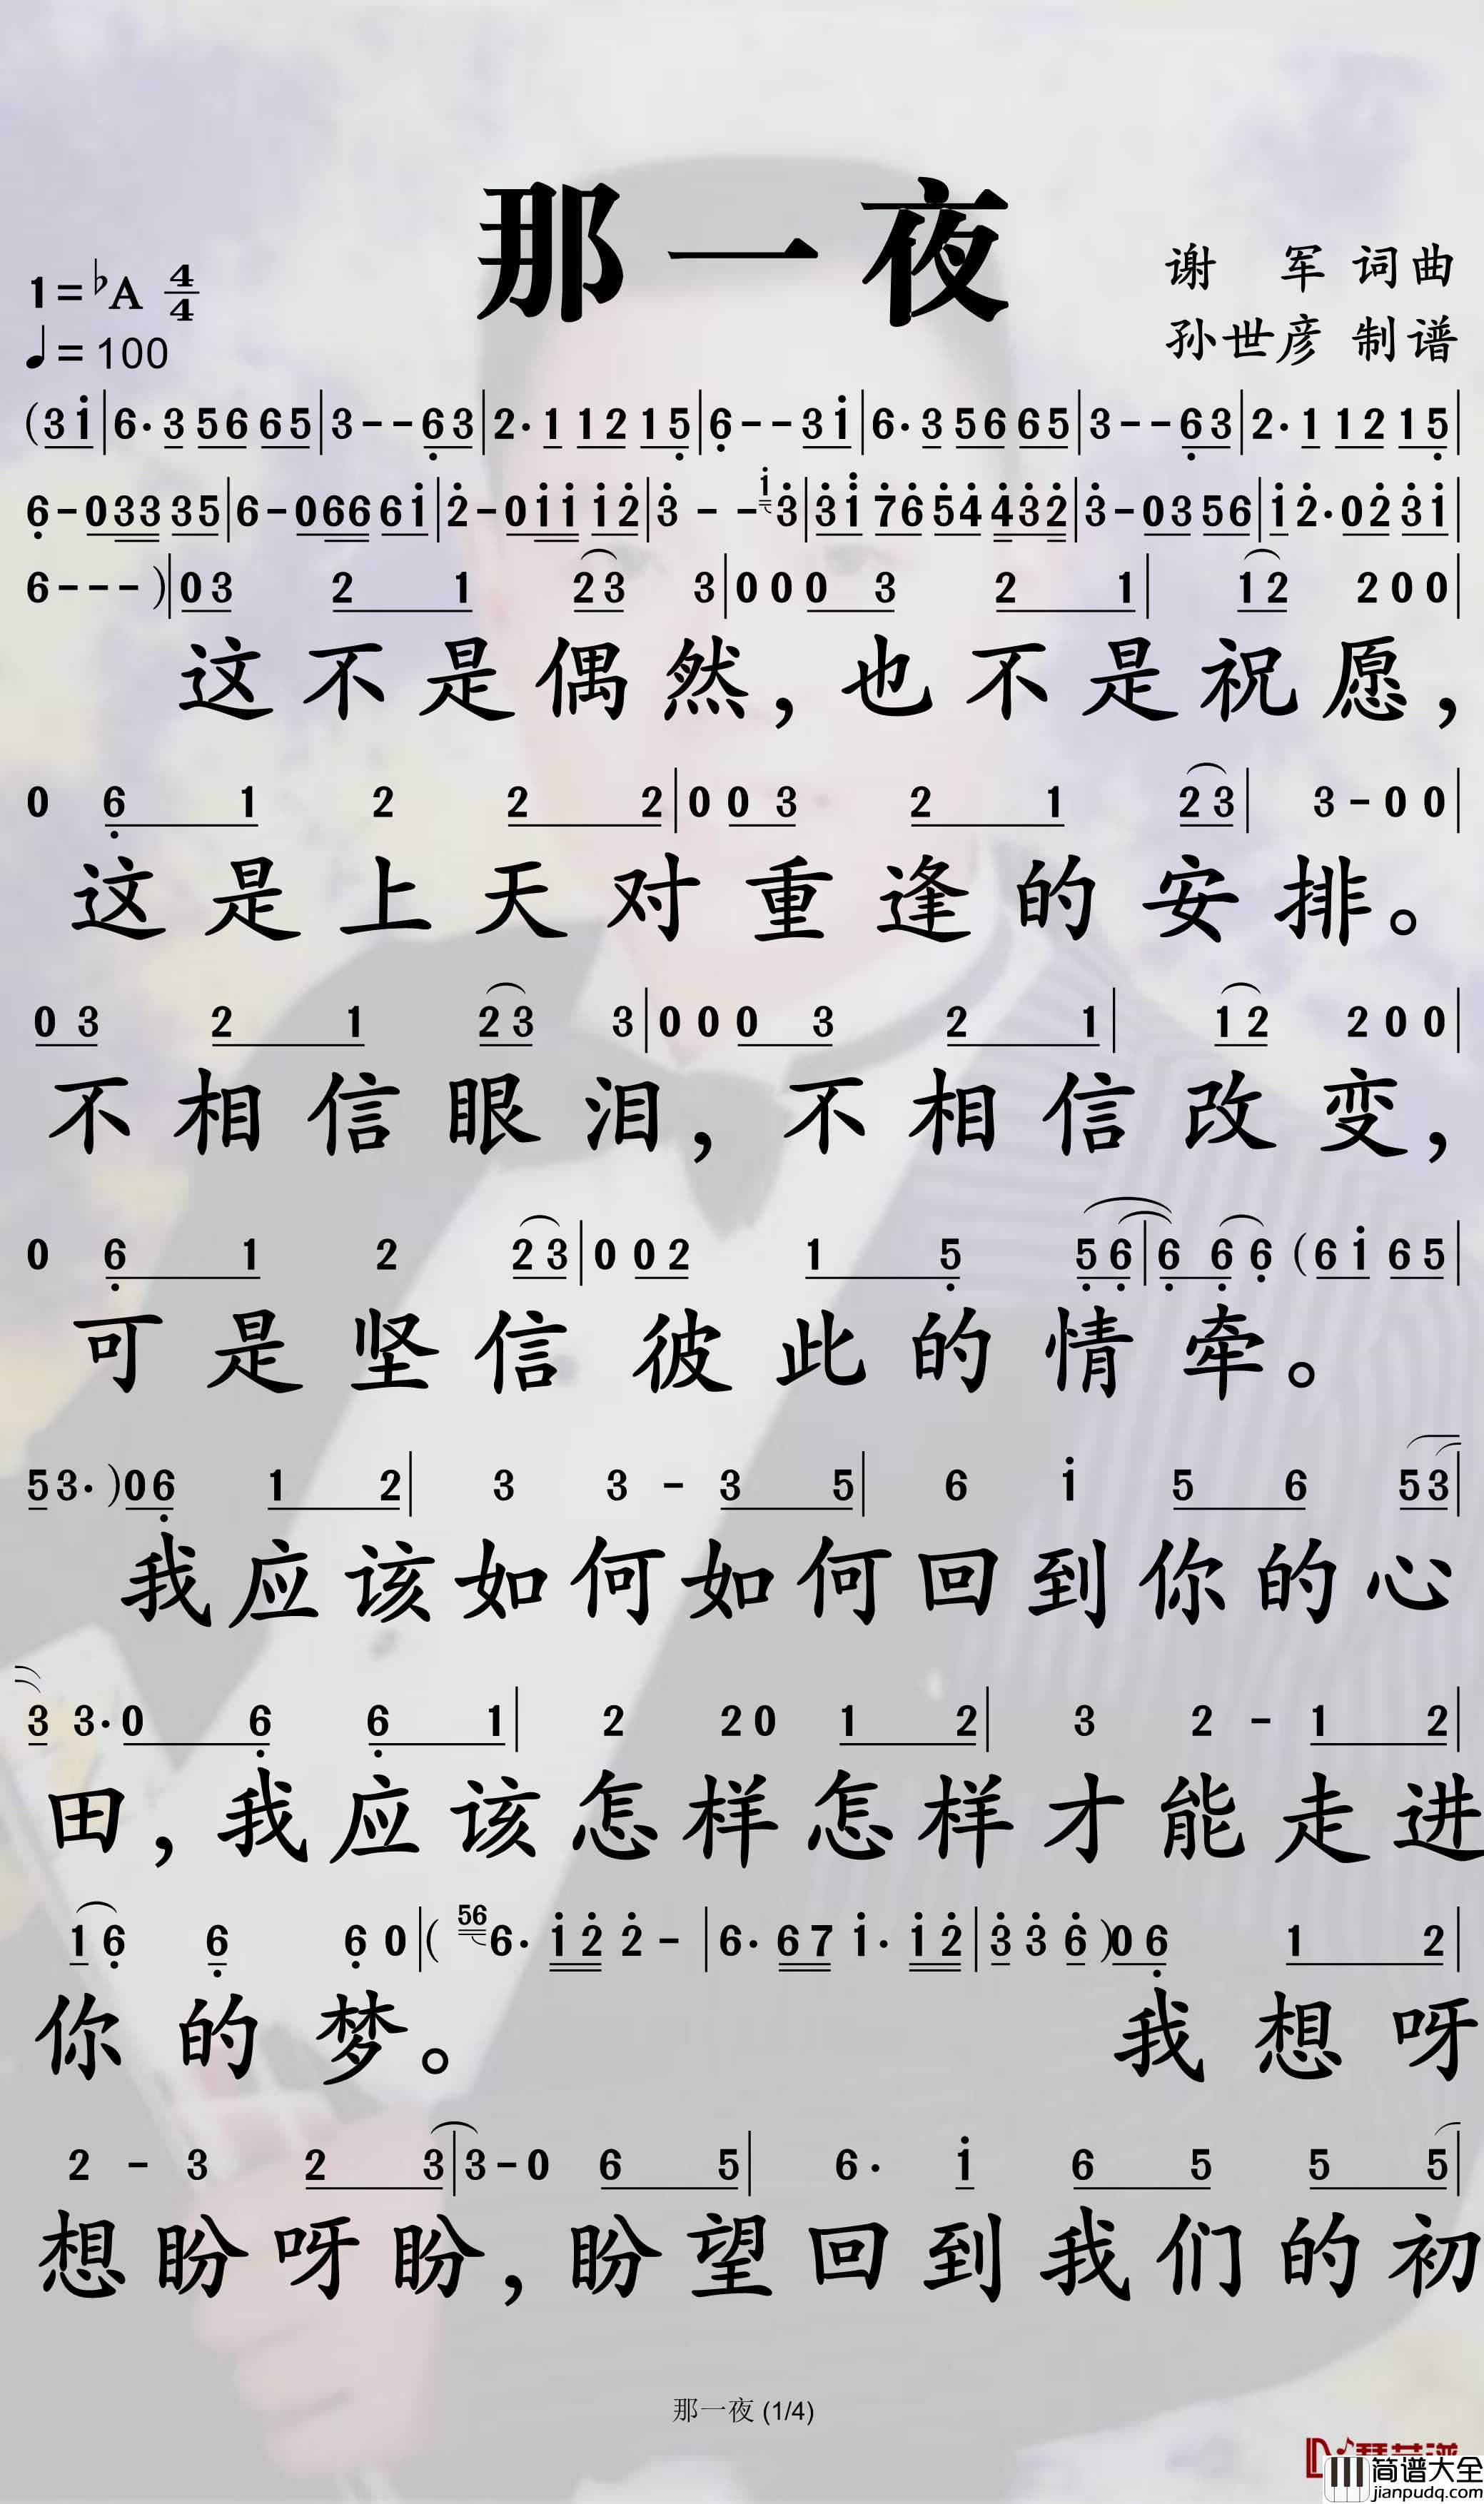 那一夜
1=♭A 4/4
♩=100
谢 军 词曲
孙世彦 制谱
(3i|6·3 56 65|3--63|2·1 12 15|6--3i|6·3 56 65|3--63|2·1 12 15|
6-033 35|6-066 61|2-011 12|3--i3|3i 76 54 432|3-03 56|i2·02 3i|
6---)|03 2 1 23 3|0 0 0 3 2 1|12 2 0 0|
这不是偶然,也不是祝愿,
0 6 1 2 2 2|0 0 3 2 1 23|3-0 0|
这是上天对重逢的安排。
0 3 2 1 23 3|0 0 0 3 2 1|12 2 0 0|
不相信眼泪,不相信改变,
0 6 1 2 23|0 0 2 1 5 56|6 6 6 (6i 65|
可是坚信彼此的情牵。
53·)06 1 2|3 3 - 3 5|6 i 5 6 53|
我应该如何如何回到你的心
3 3·0 6 6 1|2 2 0 1 2|3 2 - 1 2|
田,我应该怎样怎样才能走进
16 6 6 0|(56 6·i2 2-|6·67 i·i2|3 3 6)06 1 2|
你的梦。 我想呀
2 - 3 2 3|3-0 6 5|6· i 6 5 5 5|
想盼呀盼,盼望回到我们的初
那一夜 (1/4)
简谱大全
jianpudq.com